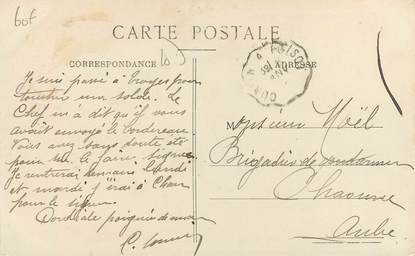 60f
CARTE POSTALE
CORRESPONDANCE
ADRESSE
Je suis passé à Troyes pour
toucher ma solde. Le
Chef m'a dit qu'il vous
avait envoyé le bordereau.
sans doute été
pour le faire signer
Je rentrerai demain lundi
et mardi j'irai à
pour le signer.
Cordiale poignée de main
M onsieur Noël
Brigadier de gendarmerie
Chaource
Aube